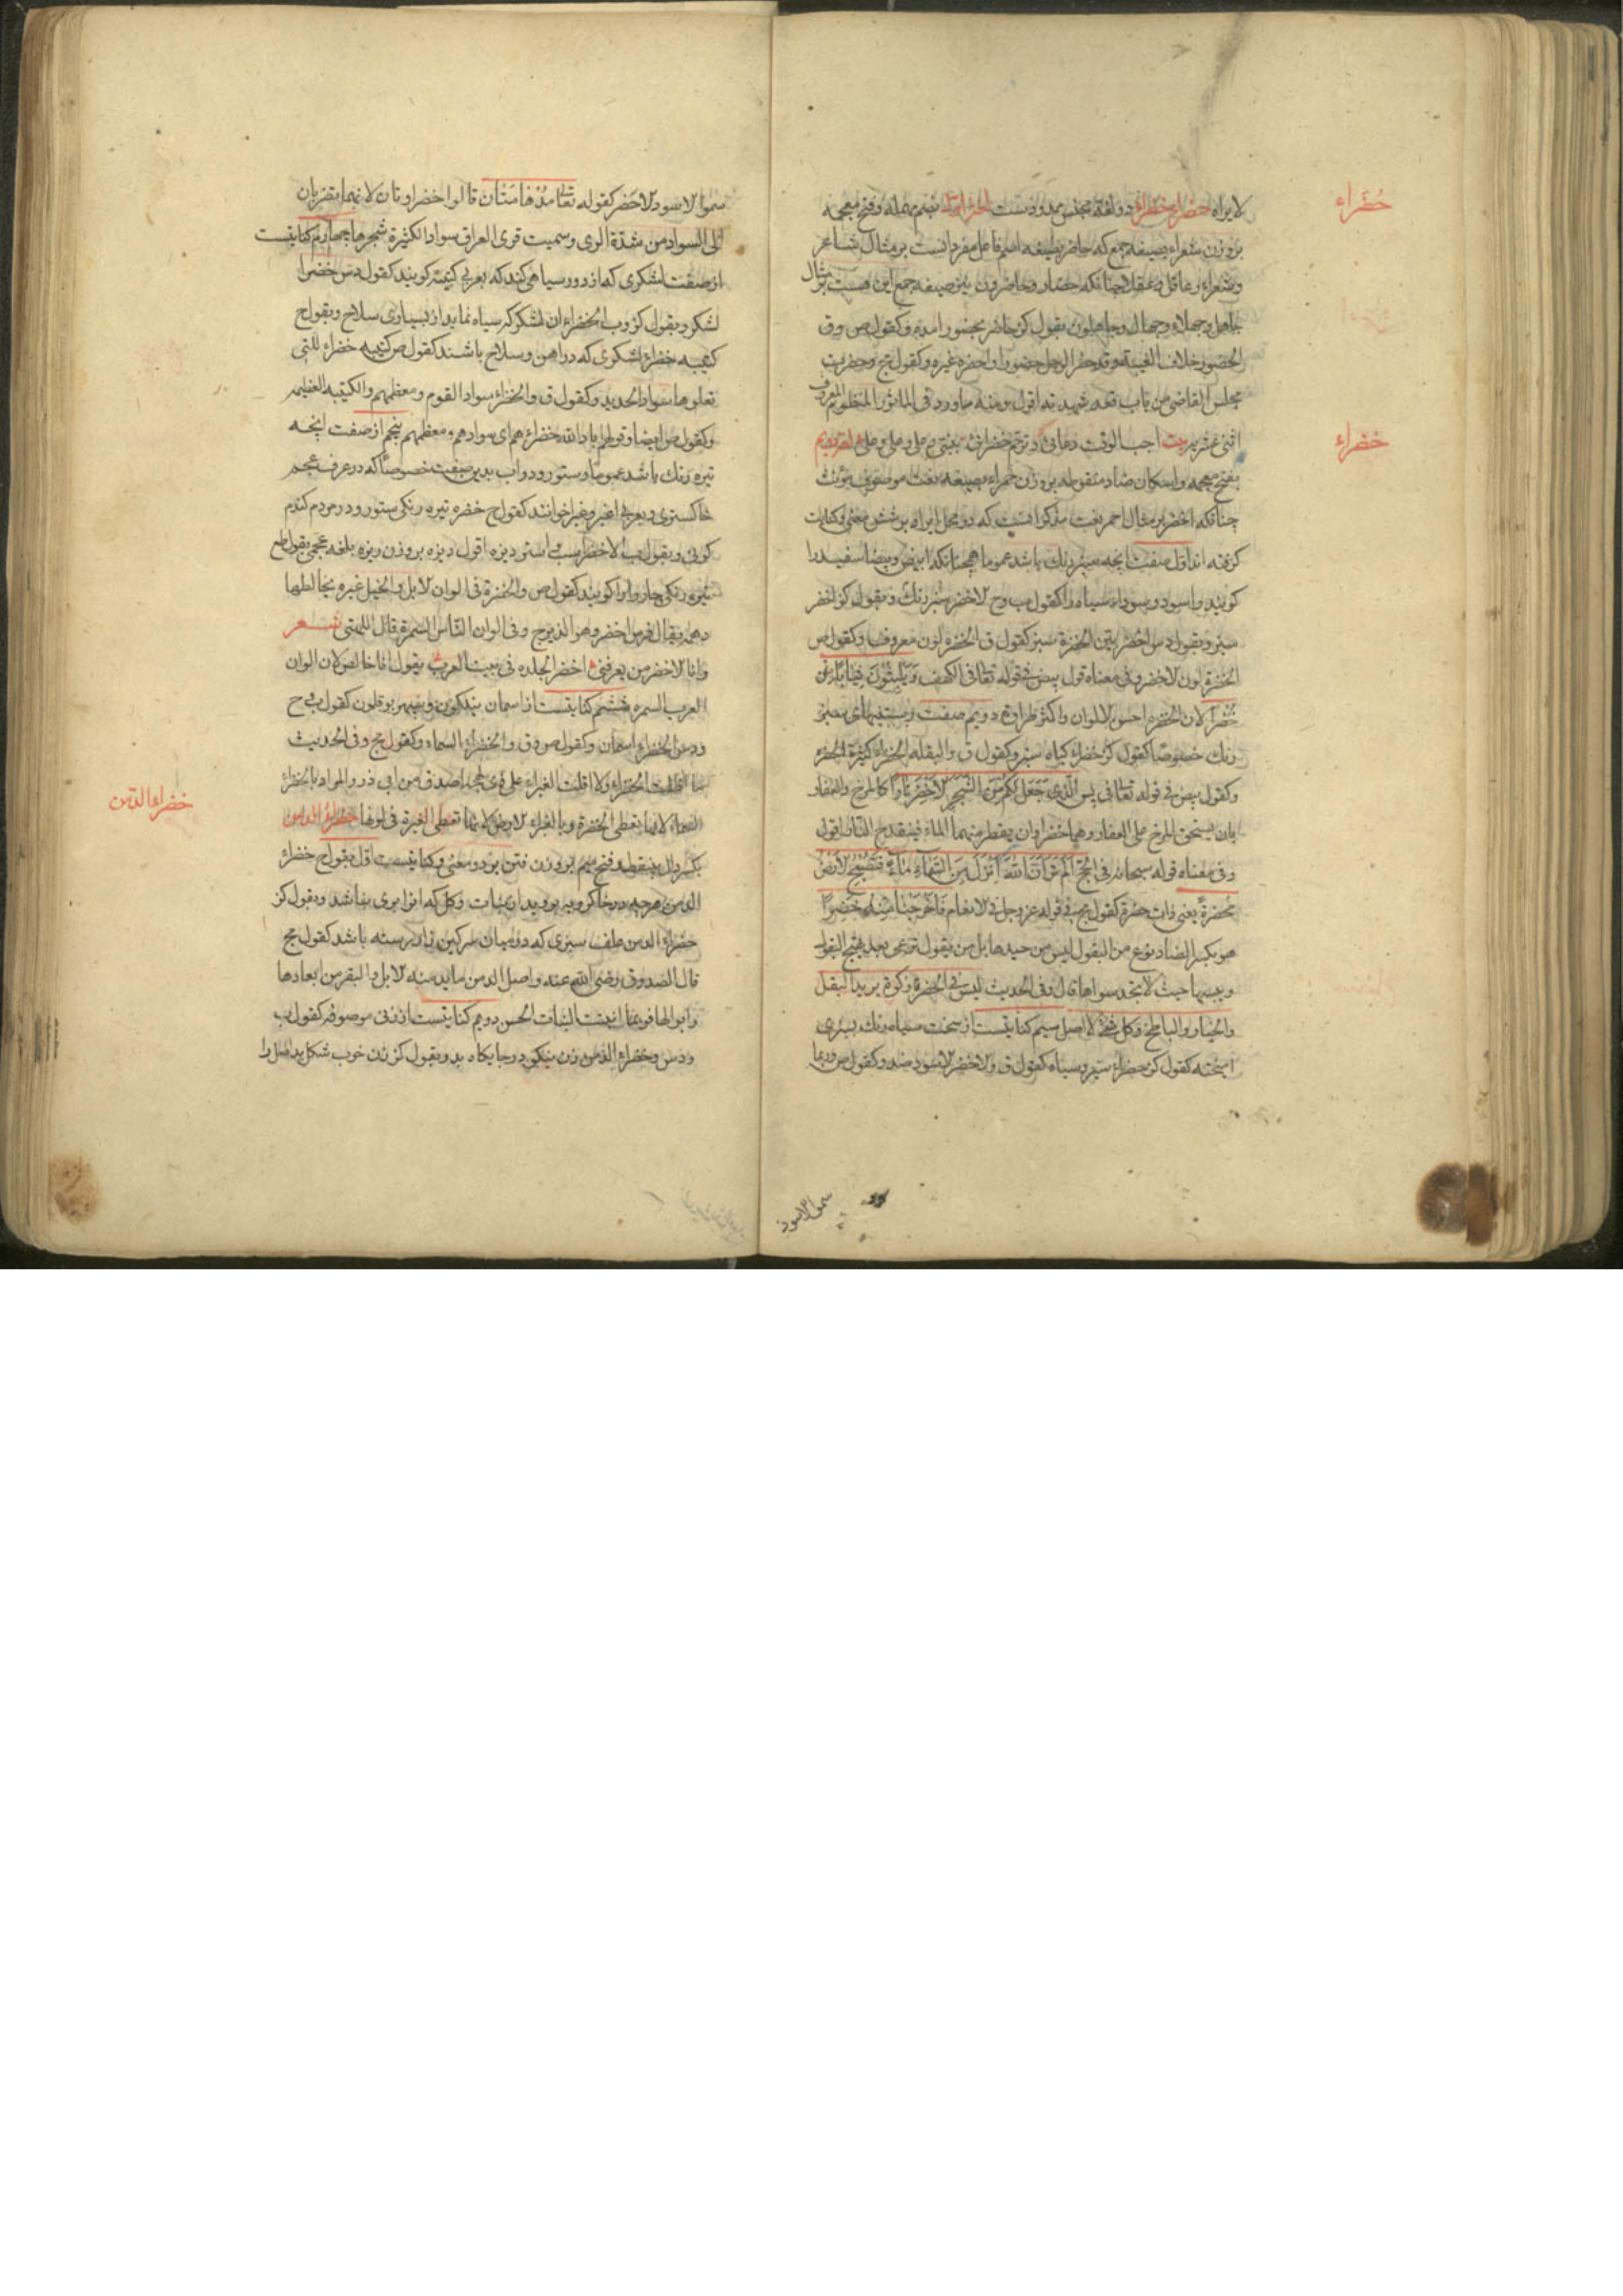 حضراء
لایراه حضراء خضراء دو لغة مجنس ممدودست بضم مهمله و فتح معجمه
بر وزن شعراء بصیغه جمع که حاضر بصیغه اسم فاعل مفرد انست بر مثال شاعر
وشعراء وعاقل وعقلا چنانکه حضار وحاضرون نیز صیغه جمع این هست بر مثال
جاهل وجهلاء وجهال وجاهلون بقول کز حاضر بحضور امده وکقول ص وق
الحضور خلاف الغیبة وقد حضر الرجل حضورا واحضره غیره وکقول مج وحضرت
مجلس القاضی من باب قعد شهدته اقول ومنه ماورد فی الماثور المنظوم
خضراء
بفتح معجمه واسکان ضاد منقوطه بر وزن حمراء بصیغه نعت موصوف مؤنث
چنانکه اخضر بر مثال احمر نعت مذکر انست که در محل ایراه بر شش معنی وکنایت
کرفته اند اول صفت انچه سبز رنك باشد عموما همچنانکه ابیض وبیضا سفید را
کویند واسود وسوداء سیاه را کقول ب وح الاخضر سبز رنك وبقول کز اخضر
سبز وبقول دس اخضر بین الخضرة سبز کقول ق الخضره لون معروف وکقول ص
الخضرة لون الاخضر وفی معناه قول بیض فی قوله تعالی فی الکهف وَيَلْبَسُونَ ثِيَابًا
خُضْرًا لان الخضره احسن الالوان واکثر طراوة دویم صفت رستنیهای سبز
رنك خصوصًا کقول کز خضراء کیاه سبز وکقول ق والبقله الخضراء کثیرة الخضر
وکقول بیض فی قوله تعالی فی یس الَّذِي جَعَلَ لَكُمْ مِنَ الشَّجَرِ الْأَخْضَرِ نَارًا کالمرخ والعفار
بان یسحق المرخ علی العفار وهما خضراوان یقطر منهما الماء فینقدح النار اقول
وفی معناه قوله سبحانه فی الحج أَلَمْ تَرَ أَنَّ اللَّهَ أَنْزَلَ مِنَ السَّمَاءِ مَاءً فَتُصْبِحُ الْأَرْضُ
مخضرةً یعنی ذات خضرة کقول مج فی قوله عز وجل فی الانعام فَأَخْرَجْنَا مِنْهُ خَضِرًا
هو بکسر الضاد نوع من البقول لیس من جیدها بل من بقول ترعی بعد هیج البقول
ویبسها حیث لا تجد سواها قال وفی الحدیث لیس فی الخضرة زکوة یرید البقل
والخیار والبا وکل لا اصل سیم کنایتست از سخت سیاه رنك بسبزی
امیخته کقول کز خضراء سبز وسیاه کقول ق والاخضر الاسود ضد وکقول ص وربما
سموا الاسود
سموا الاسود الاخضر کقوله تعالی مُدْهَامَّتَانِ قالوا خضراوتان لانهما تضربان
الی السواد من شدة الری وسمیت قری العراق سوادا لکثرة شجرها چهارم کنایتست
از صفت لشکری که از دور سیاهی کند که بعربی کتیبه کویند کقول دس خضرا
لشکر وبقول کز وب الخضراء ان لشکر که سیاه نماید از بسیاری سلاح وبقول ح
کتیبه خضراء لشکری که در اهن وسلاح باشند کقول ص کتیبه خضراء للتی
تعلوها سواد الحدید وکقول ق والخضراء سواد القوم ومعظمهم والکتیبه العظیمه
وکقول ص ایضا وقولهم اباد الله خضراءهم ای سوادهم ومعظمهم پنجم از صفت انچه
تیره رنك باشد عموما وستور ودواب بدین صفت خصوصًا که در عرف عجم
خاکستری وبعربی اغبر وغبرا خوانند کقول ح خضره تیره رنکی ستور ودر مردم کندم
کونی وبقول ب الاخضر اسب واستر دیزه اقول دیزه بر وزن ریزه بلغه عجم بقول
تیره رنکی چاروا را کویند کقول ص والخضرة فی الوان الابل والخیل غبره یخالطها
دهمه یقال فرس اخضر وهو الدیزج وفی الوان الناس السمرة قال اللهبی شعر
وانا الاخضر من یعرفنی اخضر الجلده فی بیت العرب یقول انا خالص لان الوان
العرب السمره ششم کنایتست از اسمان نیلکون وسپهر بوقلون کقول ب ح
ودس الخضراء اسمان وکقول ص وق والخضراء السماء وکقول مج وفی الحدیث
ما اظلت الخضراء ولا اقلت الغبراء علی ذی لهجة اصدق من ابی ذر والمراد بالخضراء
السماء لانها تعطی الخضرة وبالغبراء الارض لانها تعطی الغبرة فی لونها خضراء الدمن
خضراء الدمن
بکسر دال بینقط وفتح میم بر وزن فتن بر دو معنی وکنایتست اول بقول ح خضراء
الدمن هرچه در خاکروبه بروید از نبات وکل که انرا بوی نباشد وبقول کز
خضراء الدمن علف سبزی که در میان سرکین زار رسته باشد کقول مج
قال الصدوق رضی الله عنه واصل الدمن ما تدمنه الابل والبقر من ابعارها
وابوالها فربما انبتت النبات الحسن دویم کنایتست از زنی موصوفه کقول ب
ودس وخضراء الدمن زن نیکو در جایکاه بد وبقول کز زن خوب شکل بد اصل را